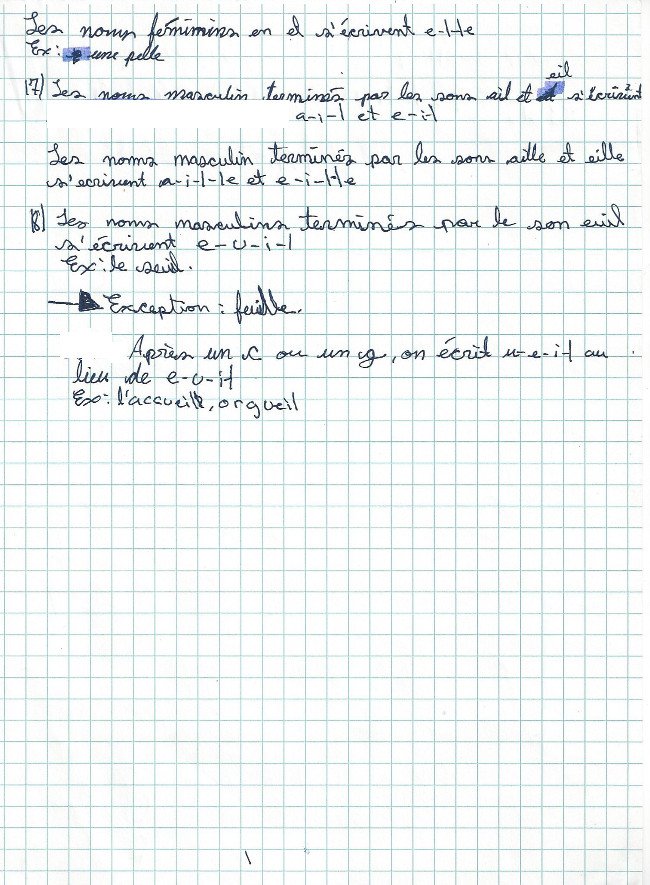 Les noms féminins en el s'écrivent e-l-l-e
Ex: une pelle
17) Les noms masculin terminés par les sons ail et eil s'écrivent
a-i-l et e-i-l
Les noms masculin terminés par les sons aille et eille
s'ecrivent a-i-l-l-e et e-i-l-l-e
18) Les noms masculins terminés par le son euil
s'écrivent e-u-i-l
Ex: le seuil.
Exception: feuille.
Après un c ou un g, on écrit u-e-i-l au
lieu de e-u-i-l
Ex: l'accueil, orgueil